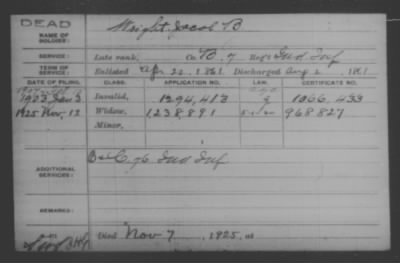 DEAD
NAME OF SOLDIER: Wright Jacob B
SERVICE: Late rank, Co. B, 7 Reg't Ind Inf
TERM OF SERVICE: Enlisted Apr 22, 1861 Discharged Aug 2, 1861
DATE OF FILING. CLASS. APPLICATION NO. CERTIFICATE NO.
1903 Jan 3 Invalid, 1294,413 1066,433
1925 Nov. 13 Widow, 1238891 968827
Minor,
ADDITIONAL SERVICES: B & C 76 Ind Inf
REMARKS:
Died Nov 7, 1925, at